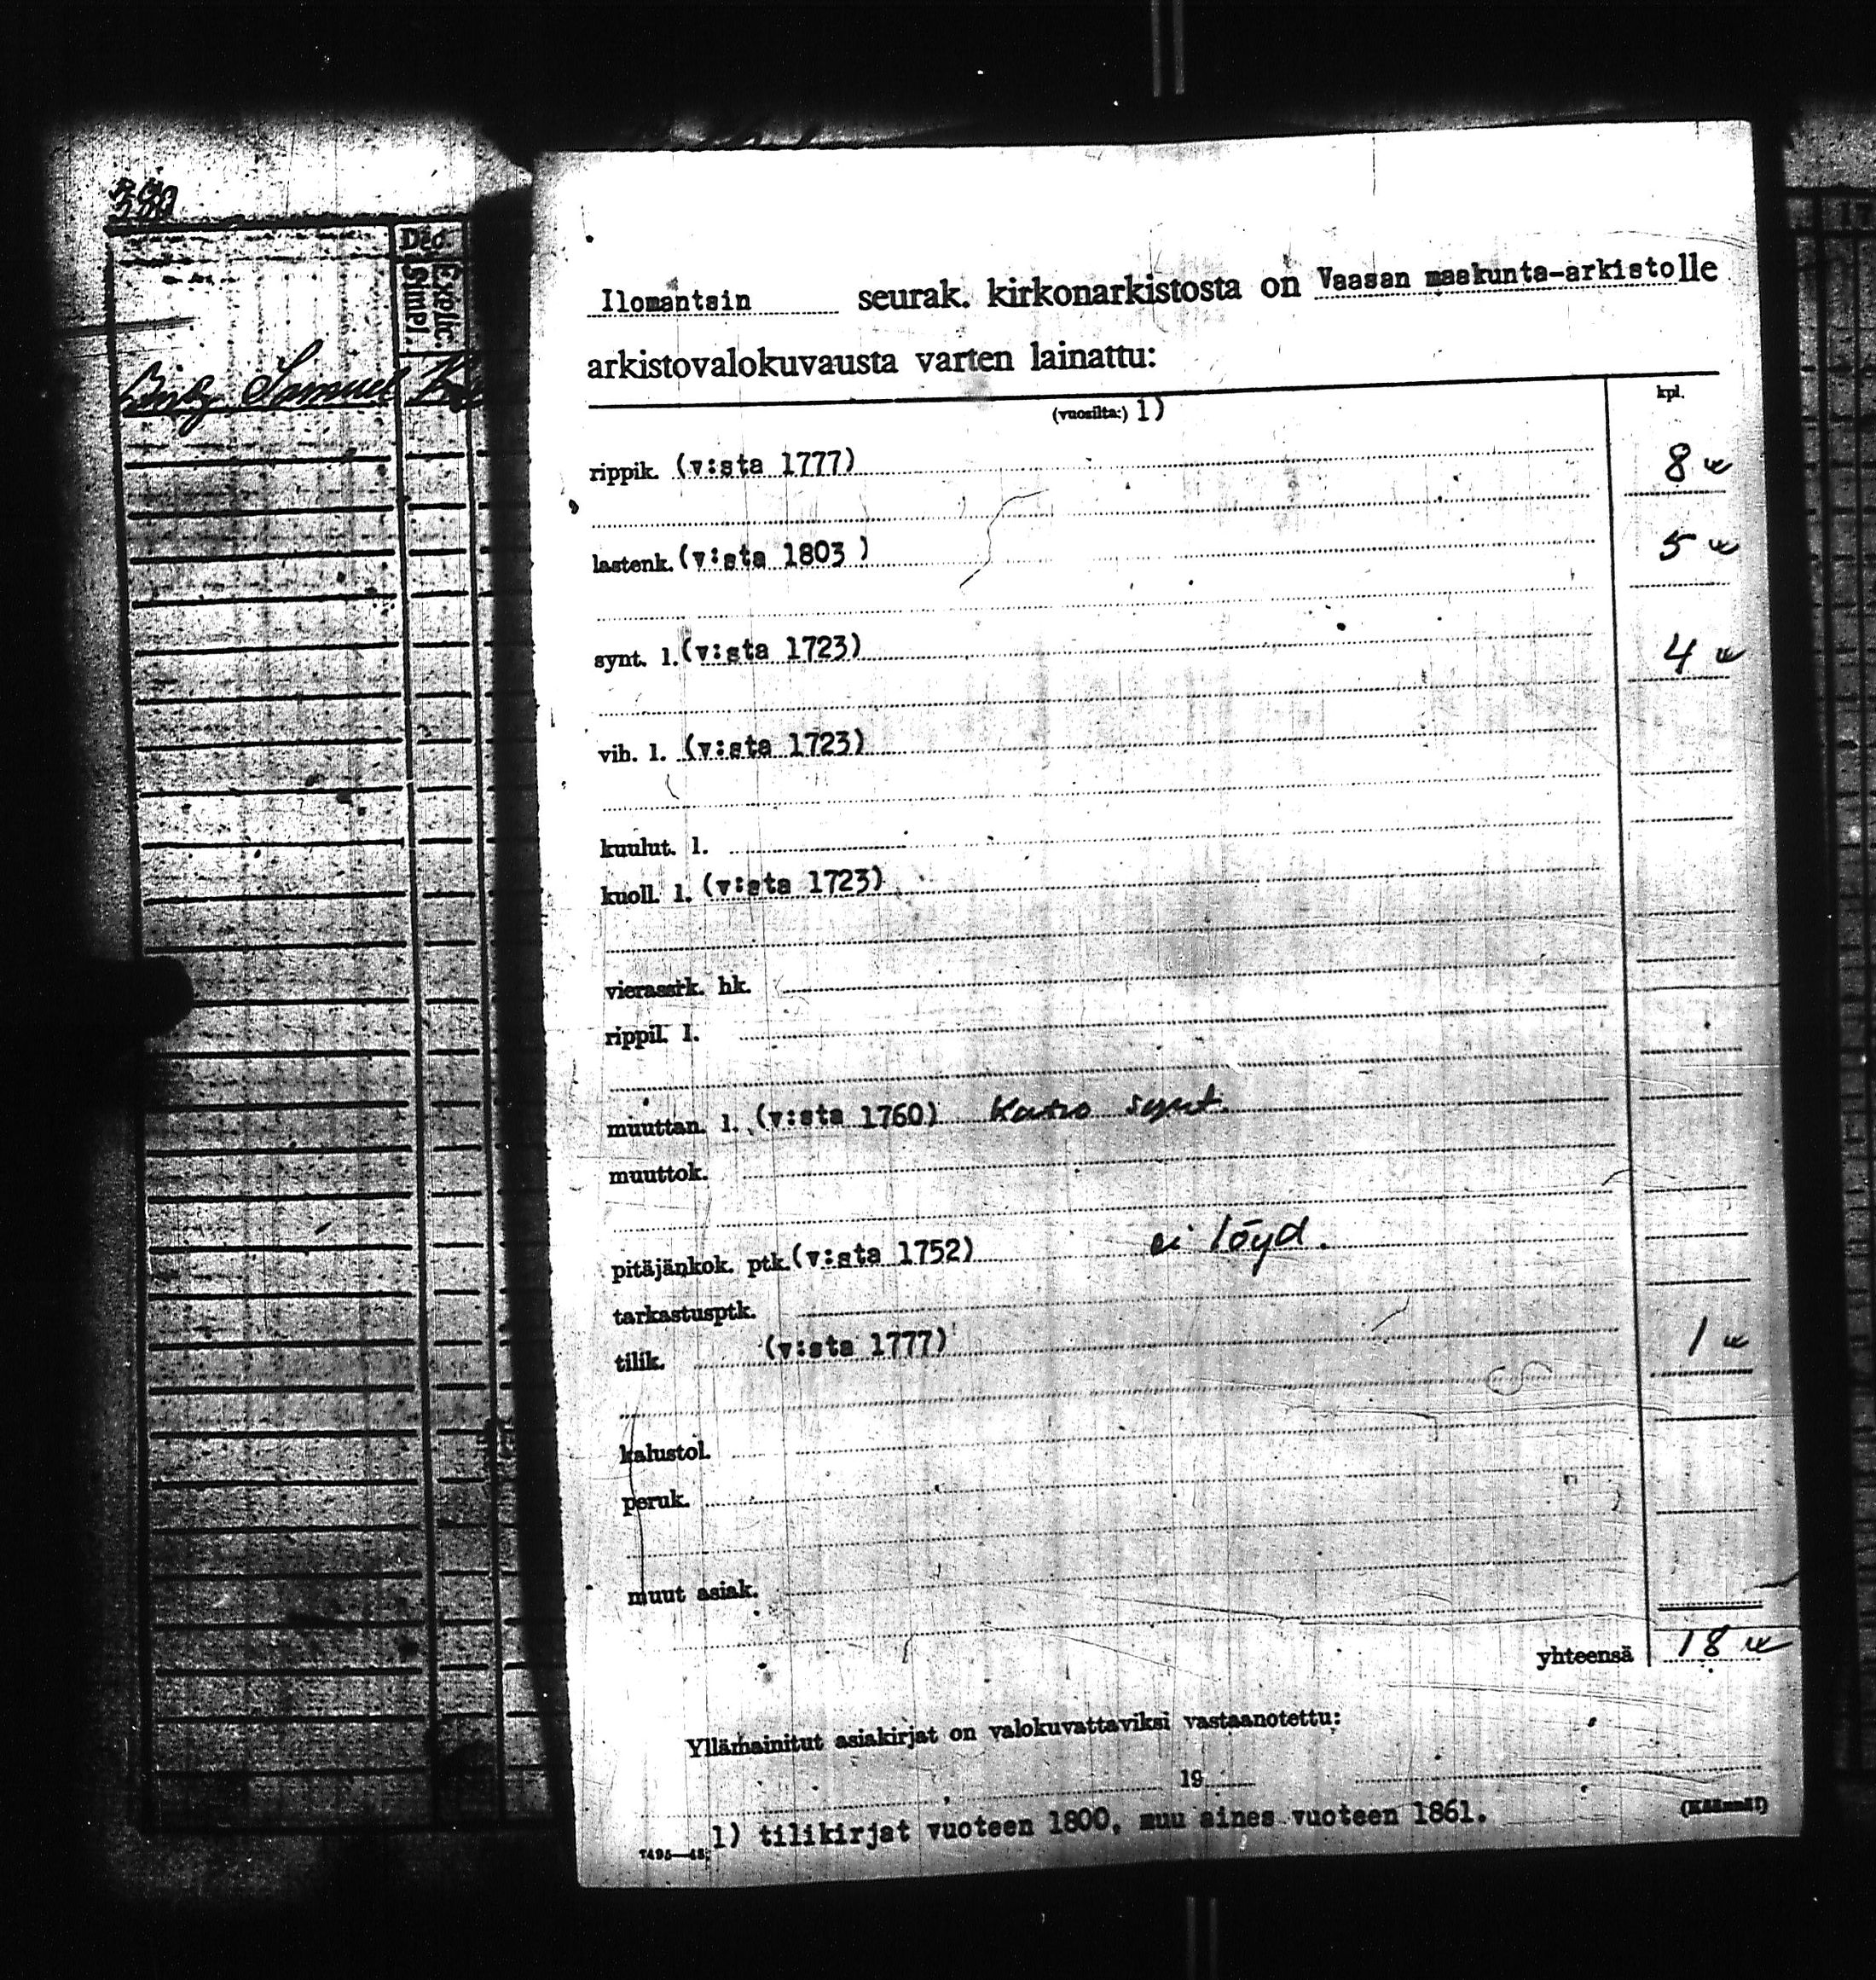 Dec.
Simpl.
Explic.
Samuel
Ilomantsin seurak. kirkonarkistosta on Vaasan maakunta-arkistolle
arkistovalokuvausta varten lainattu:
(vuosilta:) 1) kpl.
rippik. (v:sta 1777) 8
lastenk. (v:sta 1803 ) 5
synt. l. (v:sta 1723) 4
vih. l. (v:sta 1723)
kuulut. l.
kuoll. l. (v:sta 1723)
vierassrk. hk.
rippil. l.
muuttan. l. (v:sta 1760) Katso synt.
muuttok.
pitäjänkok. ptk. (v:sta 1752) ei löyd.
tarkastusptk.
tilik. (v:sta 1777) 1
kalustol.
peruk.
muut asiak.
yhteensä 18
Yllämainitut asiakirjat on valokuvattaviksi vastaanotettu:
19
1) tilikirjat vuoteen 1800, muu aines vuoteen 1861.
(Käännä!)
7495—48